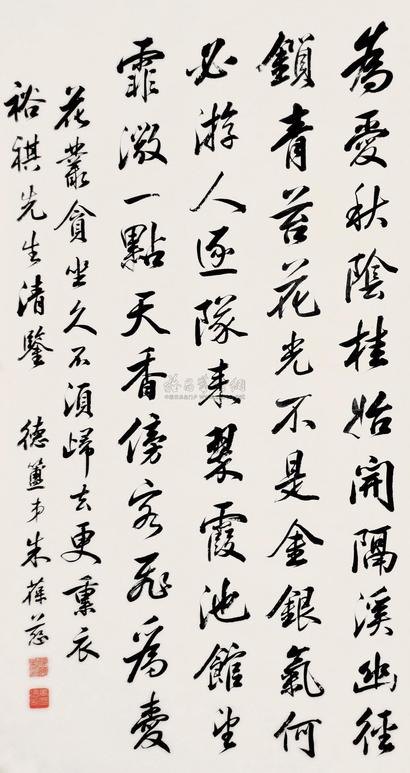 為愛秋陰桂始開隔溪幽徑
鎖青苔花光不是金銀氣何
必游人逐隊來翠霞池館坐
霏微一點天香傍客飛為愛
花叢貪坐久不須歸去更熏衣
裕祺先生清鑒 德簠弟朱葆慈